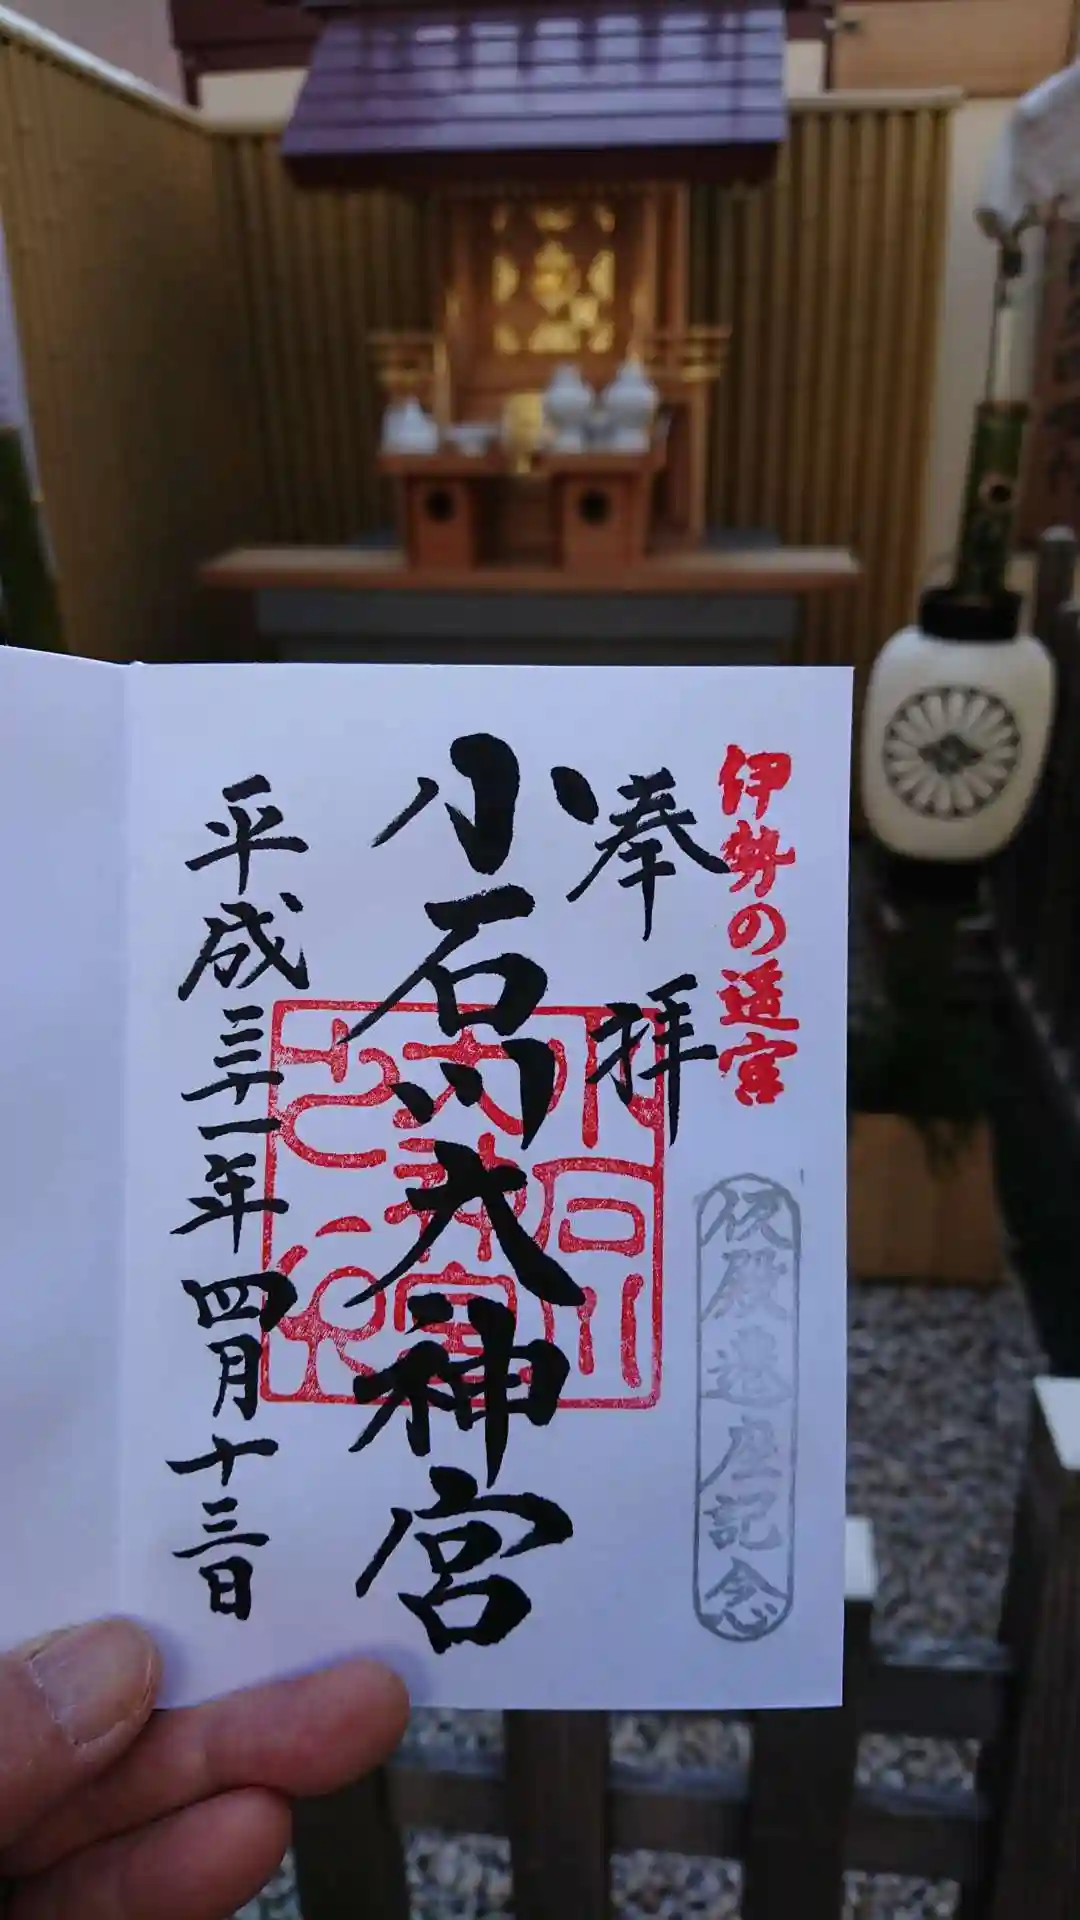 伊勢の遥宮
仮殿遷座記念
奉拝
小石川大神宮
小石川大神宮
平成三十一年四月十三日